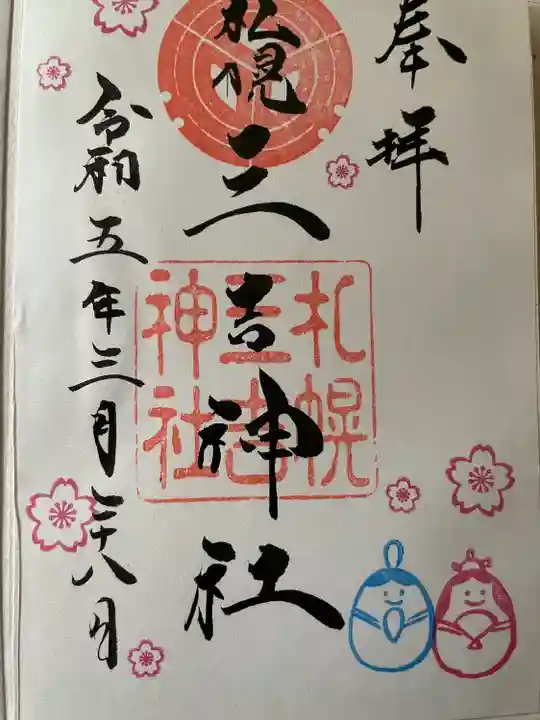 奉拝
札幌三吉神社
札幌
三吉
神社
令和五年三月二十八日